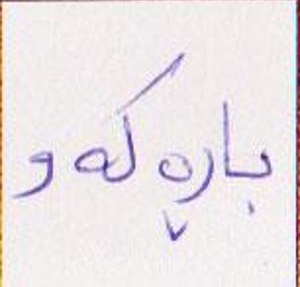 بارەکە و